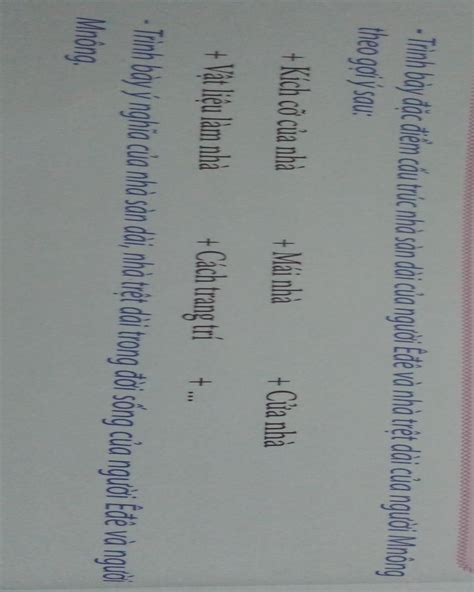 - Trình bày đặc điểm cấu trúc nhà sàn dài của người Êđê và nhà trệt dài của người Mnông
theo gợi ý sau:
+ Kích cỡ của nhà + Mái nhà + Cửa nhà
+ Vật liệu làm nhà + Cách trang trí + ...
- Trình bày ý nghĩa của nhà sàn dài, nhà trệt dài trong đời sống của người Êđê và người
Mnông.